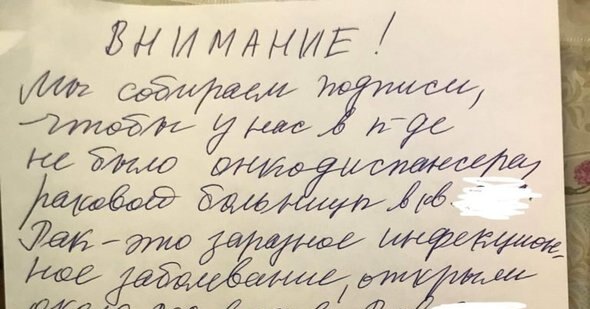 ВНИМАНИЕ!
Мы собираем подписи,
чтобы у нас в п-де
не было онкодиспансера,
раковой больницы в кв.
Рак – это заразное инфекцион-
ное заболевание, открыли